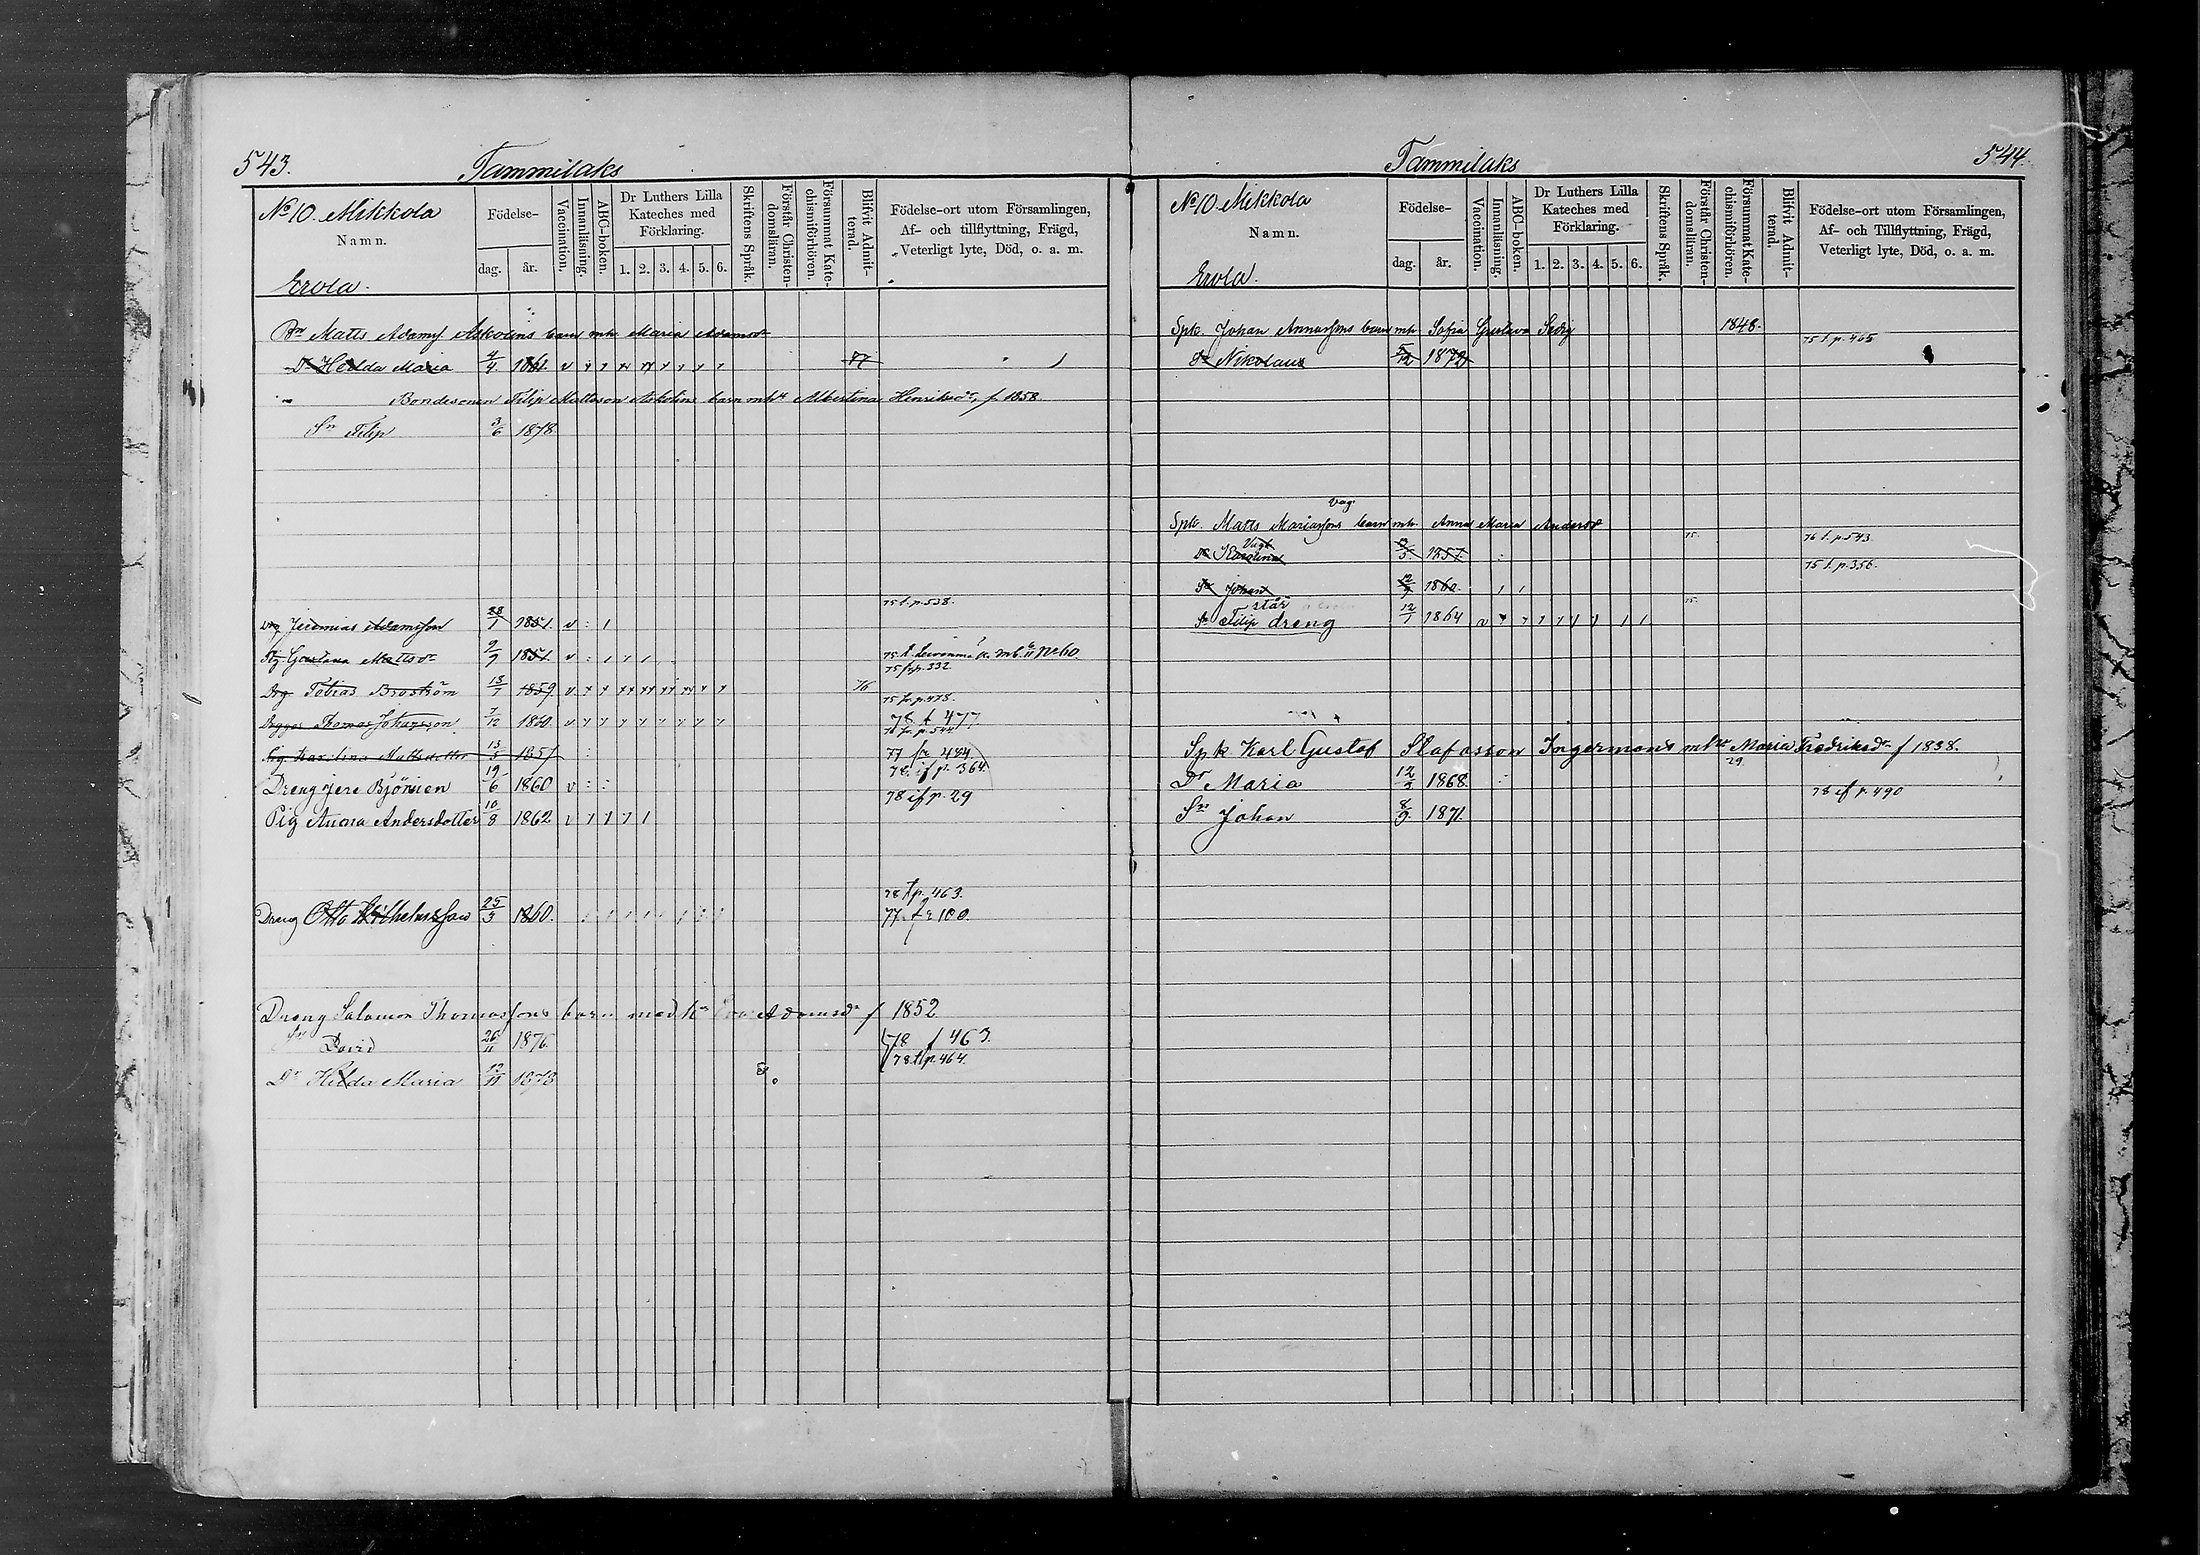 543.
Tammilaks
No 10. Mikkola
Namn.
Erola.
Födelse-
dag.
år.
Vaccination.
Innanläsning.
ABC-boken.
Dr Luthers Lilla
Kateches med
Förklaring.
1. 2. 3. 4. 5. 6.
Skriftens Språk.
Förstår Christen-
domsläran.
Försummat Kate-
chismiförhören.
Blifvit Admit-
terad.
Födelse-ort utom Församlingen,
Af- och tillflyttning, Frägd,
Veterligt lyte, Död, o. a. m.
Bn Matts Adamss. Askolins barn mh. Maria Adamsdr
Dr Hedda Maria 4/4 1861. v 77
Bondesonen Filip Mattsson Askolins barn mhu Albertina Henriksdr, f 1858
Sn Filip 3/6 1878
75 t. p. 538.
Drg Jeremias Adamsson 28/1 1851. v
Pig. Gustava Mattsdr 9/9 1851. v
75 fr p. 332
Drg Tobias Broström 13/1 1859 v 76
75 fr. p. 478.
Thomas Johansson 7/12 1860 v 78 t 477
76 fr. p. 544
Pig. Karolina Mattsdotter 13/5 1857 77 fr 484
78. if p. 364.
Dreng Jere Björnien 19/6 1860 v
78 if p. 29
Pig Anna Andersdotter 10/8 1862
78 t p. 463.
Dreng Otto Wilhelmsson 25/3 1860. 77. fr 100.
Dreng Salomon Thomassons barn med hu Eva Adamsdr f 1852
Sn David 26/11 1876. 78 f 463.
78 t p. 464.
Dr Hilda Maria 12/11 1878
544.
Tammilaks
No 10 Mikkola
Namn.
Erola.
Födelse-
dag.
år.
Vaccination.
Innanläsning.
ABC-boken.
Dr Luthers Lilla
Kateches med
Förklaring.
1. 2. 3. 4. 5. 6.
Skriftens Språk.
Förstår Christen-
domsläran.
Försummat Kate-
chismiförhören.
Blifvit Admit-
terad.
Födelse-ort utom Församlingen,
Af- och Tillflyttning, Frägd,
Veterligt lyte, Död, o. a. m.
Spk. Johan Annassons barn mh. Sofia Gustava Seorg 1848.
75 t. p. 465
Sn Nikolaus 5/12 1872
Spk. Matts Mariassons barn mh. Anna Maria Andersdr
75. 76 t. p. 543.
Dr Karolina 1857.
75 t. p. 356.
Sn Johan 12/9 1860.
står 75.
Sn Filip dreng 12/1 1864
Spk Karl Gustaf Olofsson Ingermans mhu Maria Fredriksdr f 1838.
29.
Dr Maria 12/2 1868.
78 if p. 490
Sn Johan 8/9 1871.